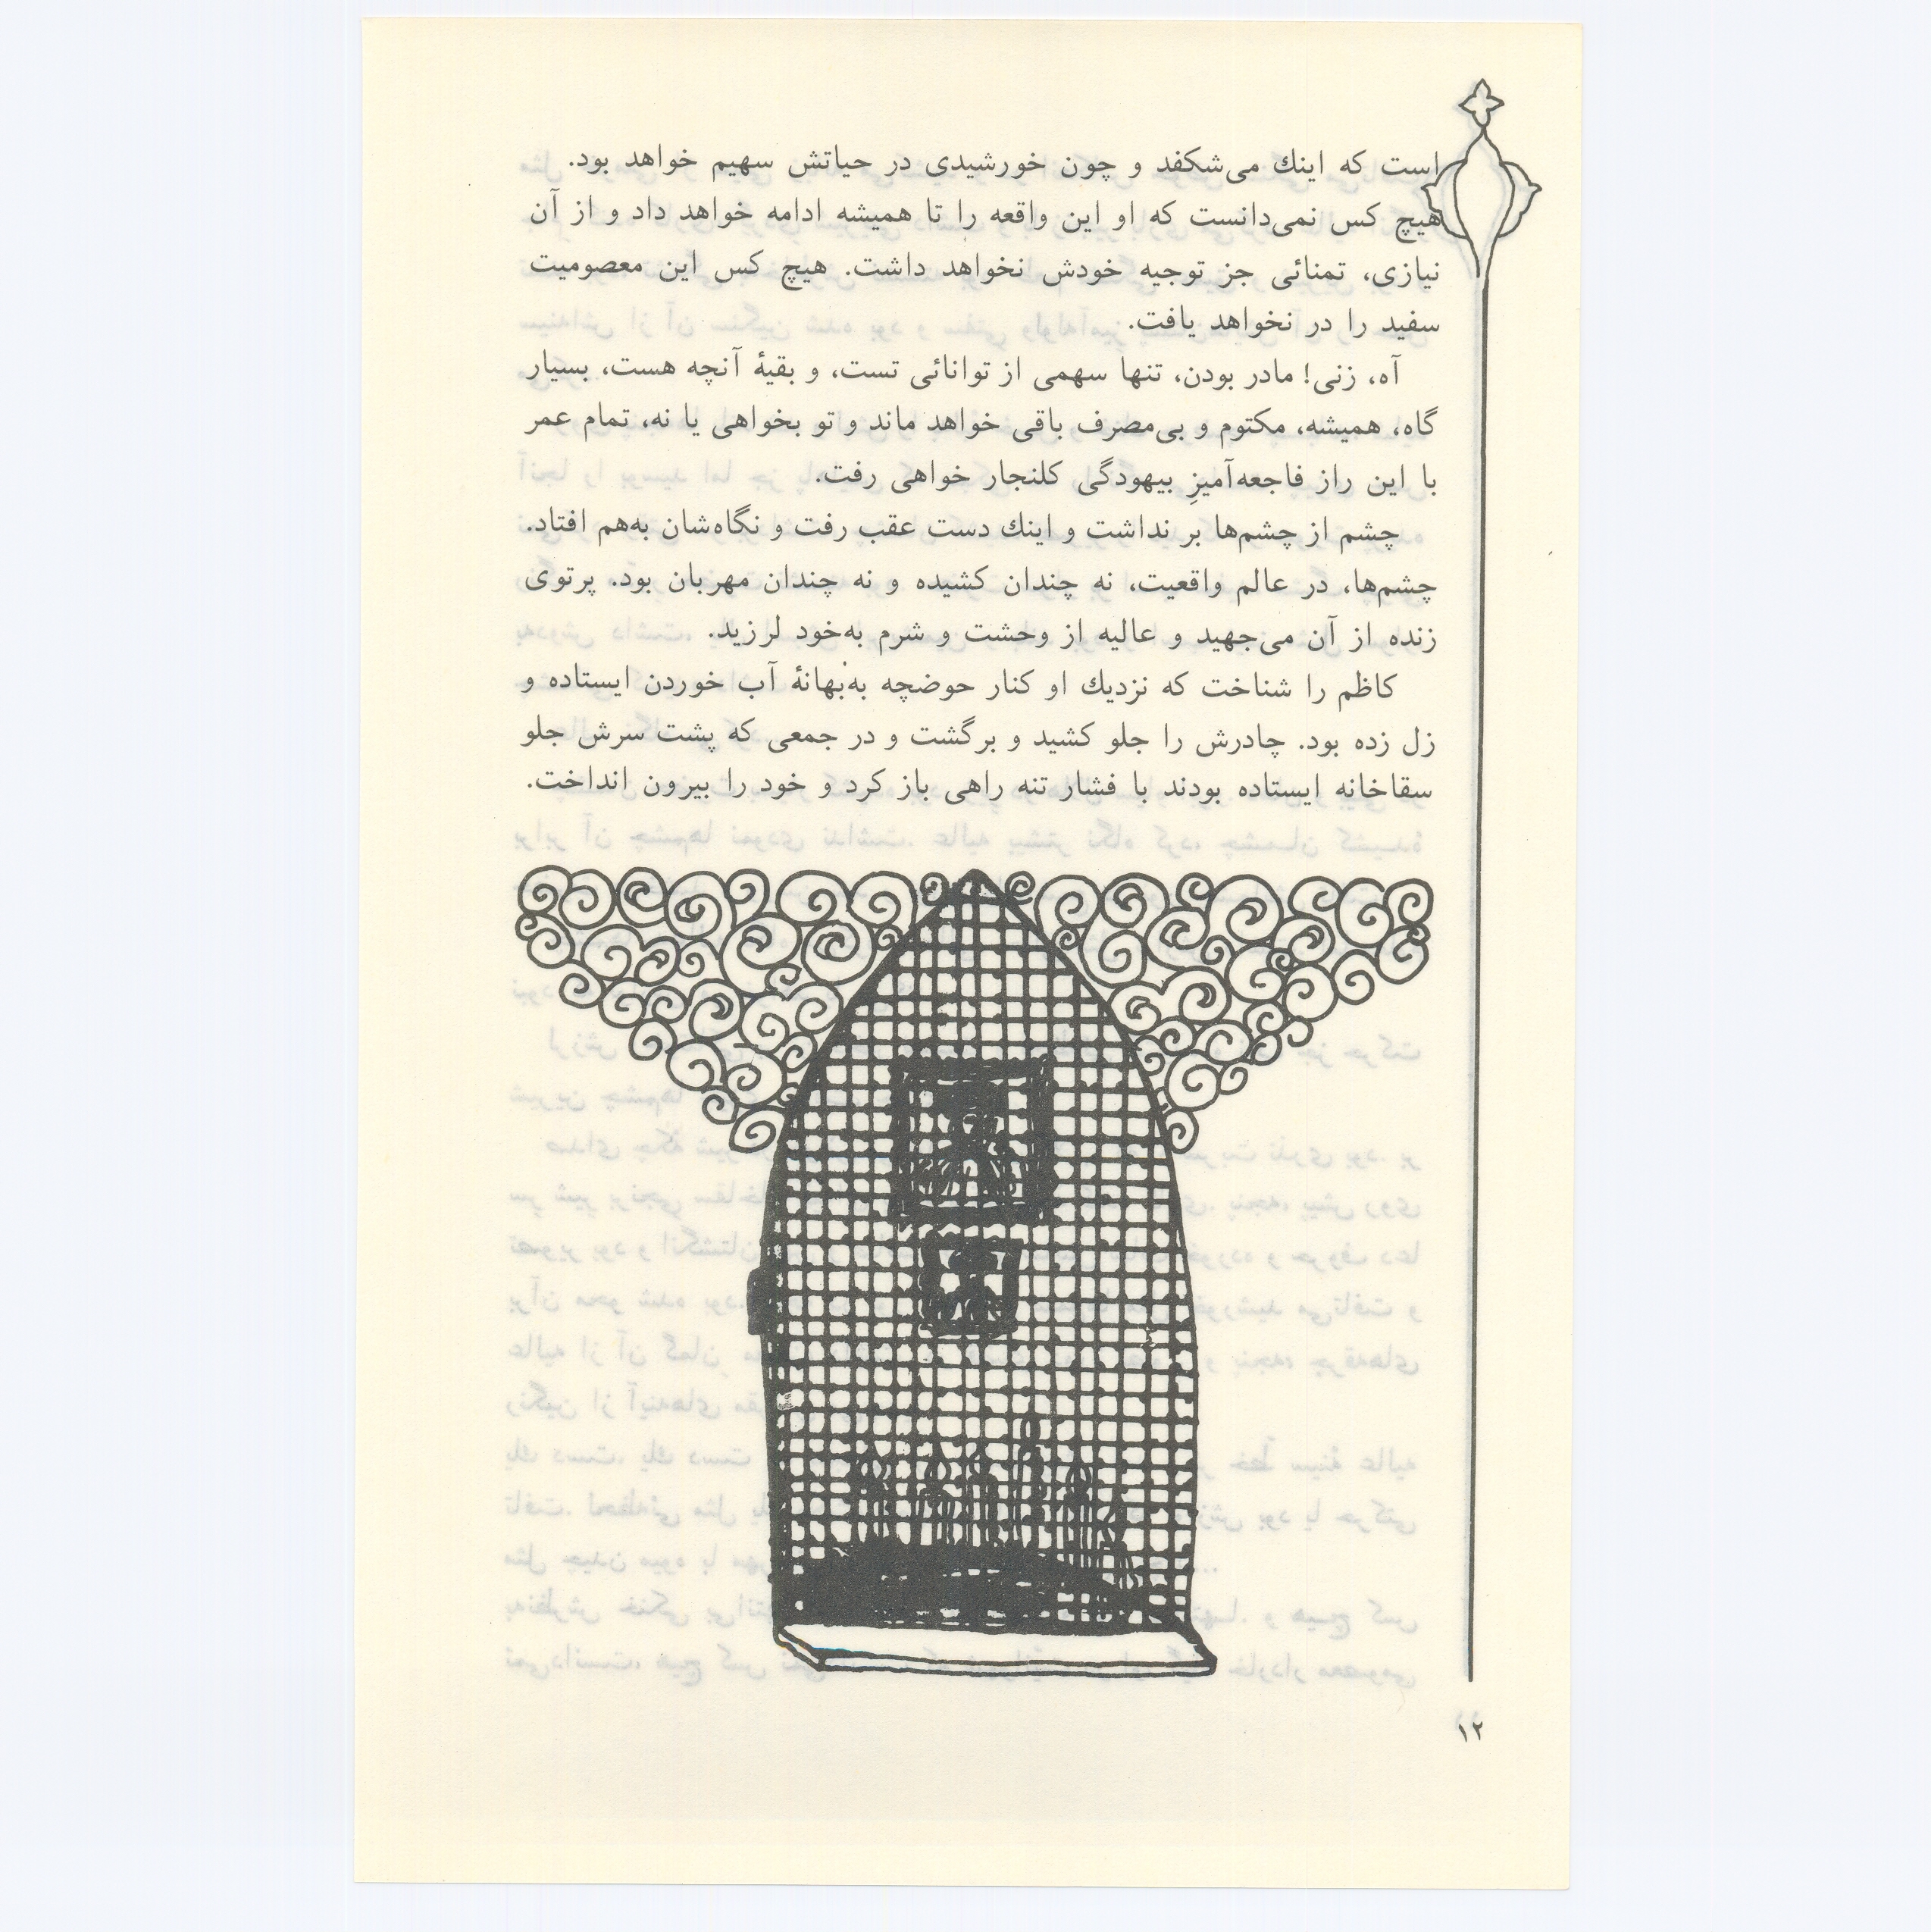 است که اینك می‌شکفد و چون خورشیدی در حیاتش سهیم خواهد بود.
هیچ کس نمی‌دانست که او این واقعه را تا همیشه ادامه خواهد داد و از آن
نیازی، تمنائی جز توجیه خودش نخواهد داشت. هیچ کس این معصومیت
سفید را در نخواهد یافت.
آه، زنی! مادر بودن، تنها سهمی از توانائی تست، و بقیهٔ آنچه هست، بسیار
گاه، همیشه، مکتوم و بی‌مصرف باقی خواهد ماند و تو بخواهی یا نه، تمام عمر
با این راز فاجعه‌آمیزِ بیهودگی کلنجار خواهی رفت.
چشم از چشم‌ها بر نداشت و اینك دست عقب رفت و نگاه‌شان به‌هم افتاد.
چشم‌ها، در عالم واقعیت، نه چندان کشیده و نه چندان مهربان بود. پرتوی
زنده از آن می‌جهید و عالیه از وحشت و شرم به‌خود لرزید.
کاظم را شناخت که نزدیك او کنار حوضچه به‌بهانهٔ آب خوردن ایستاده و
زل زده بود. چادرش را جلو کشید و برگشت و در جمعی که پشت سرش جلو
سقاخانه ایستاده بودند با فشار تنه راهی باز کرد و خود را بیرون انداخت.
۱۲